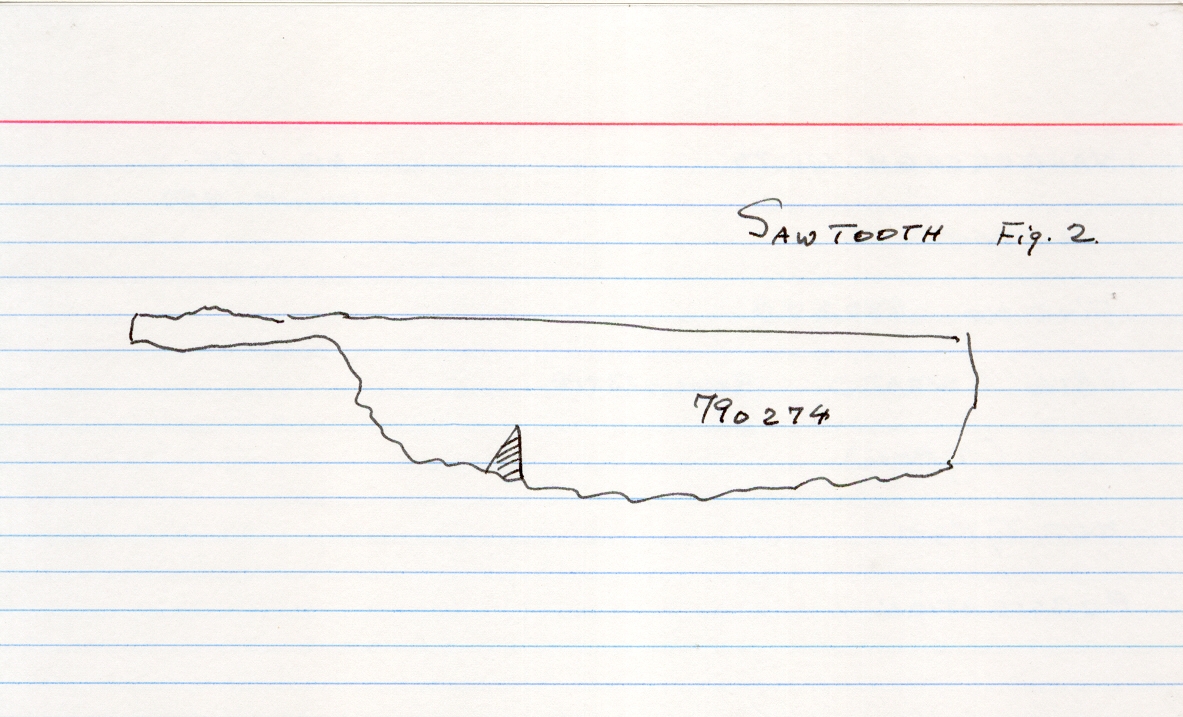 SAWTOOTH Fig. 2.
790274